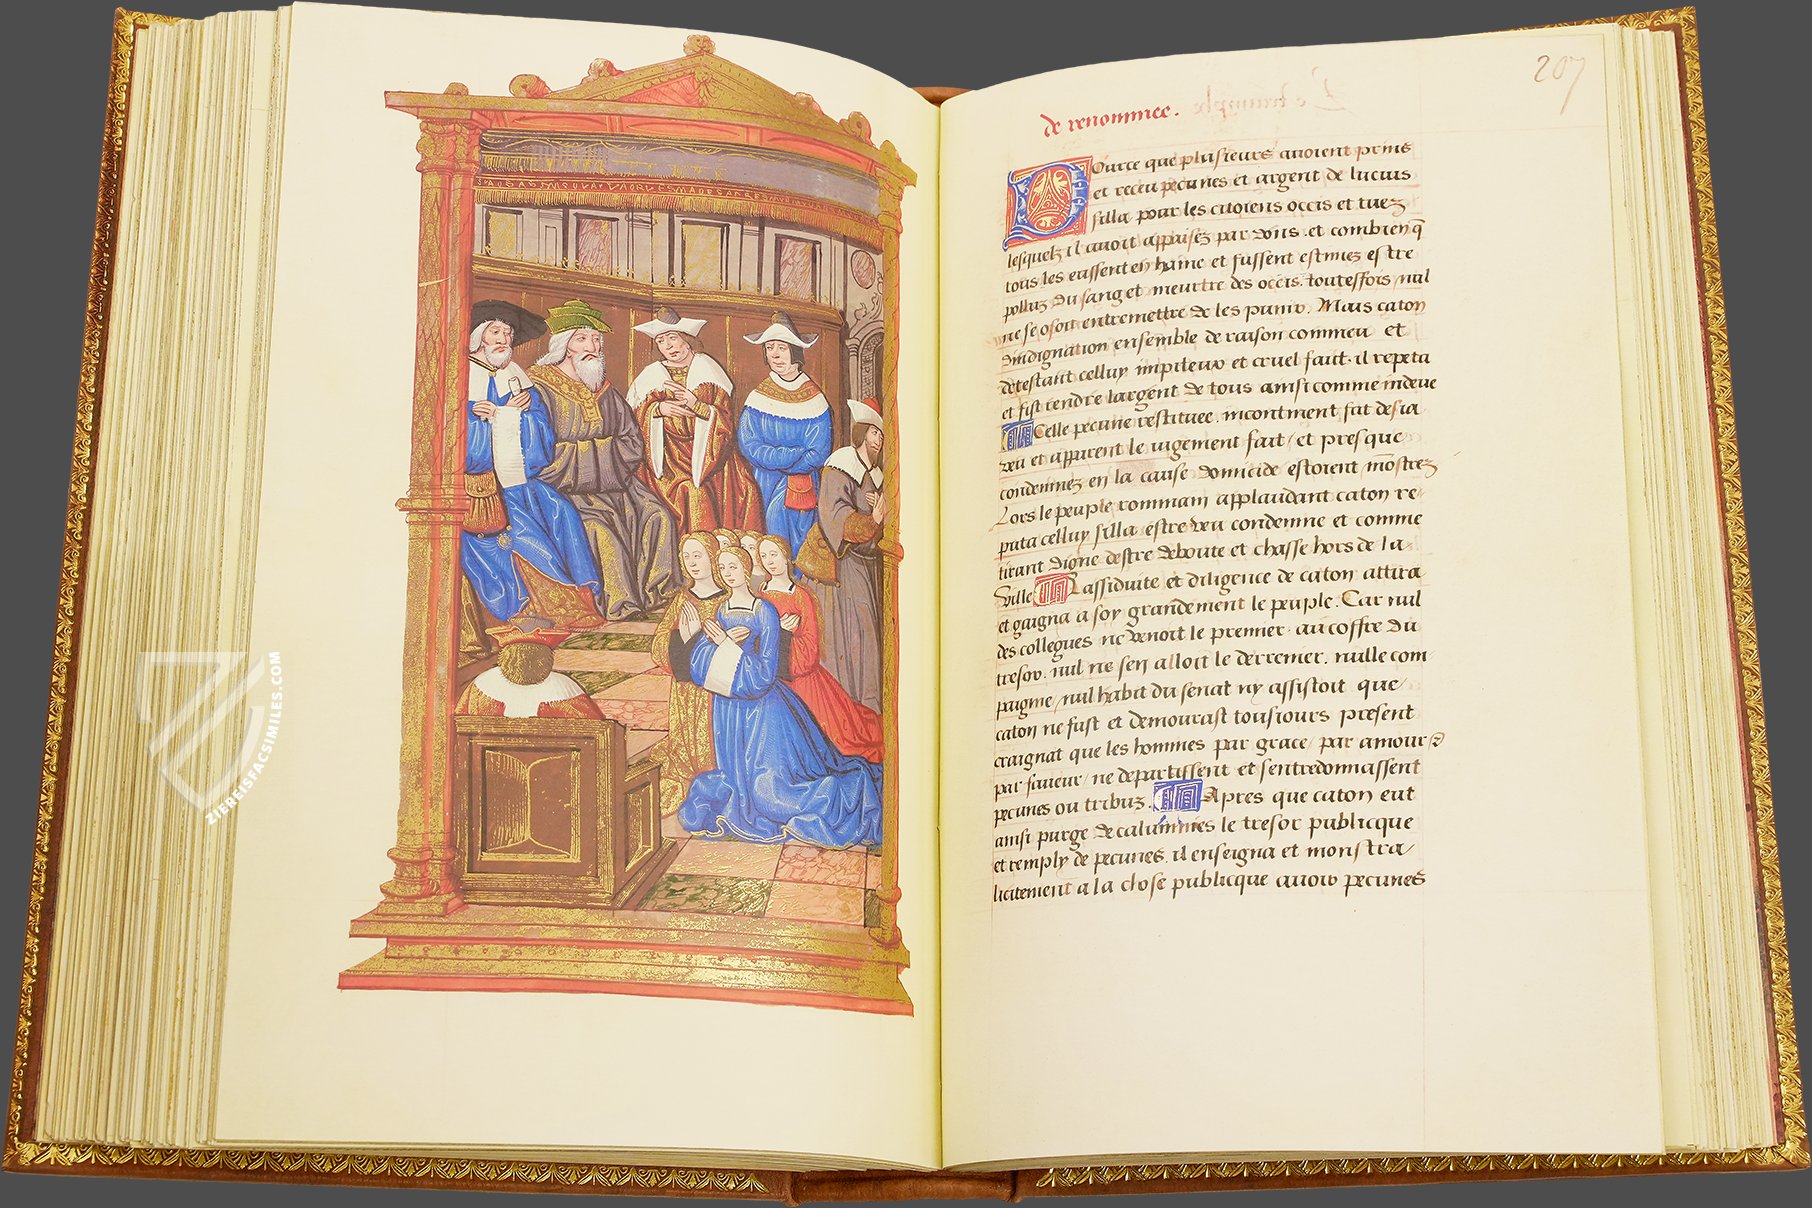 ZIEREISFACSIMILES.COM
207
de renommee.
Pource que plusieurs auoient prins
et receu pecunes et argent de lucius
silla pour les citoiens occis et tuez
lesquelz il auoit appaisez par dons. et combien q̃
tous les eussent en haine et fussent estimez estre
polluz du sang et meurtre des occis. touteffois nul
ne se osoit entremettre de les punir. Mais caton
dindignation ensemble de raison commeu et
detestant celluy impiteux et cruel fait. il repeta
et fist rendre largent de tous ainsi comme indeue
Icelle pecune restituee. incontinent fut desia
veu et apparent le iugement fait / et presque
condemnez en la cause domicide estoient mõstrez
Lors le peuple rommain applaudant caton re
puta celluy silla estre veu condemne et comme
tirant digne destre deboute et chasse hors de la
ville La assiduite et diligence de caton attira
et gaigna a soy grandement le peuple. Car nul
des collegues ne venoit le premier au coffre du
tresor. nul ne sen alloit le derrenier. nulle com
paignie / nul habit du senat ny assistoit que
caton ne fust et demourast tousiours present
craignãt que les hommes par grace / par amour
par faueur / ne departissent et sentredonnassent
pecunes ou tribuz. Apres que caton eut
ainsi purge de calumnies le tresor publicque
et remply de pecunes. il enseigna et monstra
licitement a la chose publicque auoir pecunes